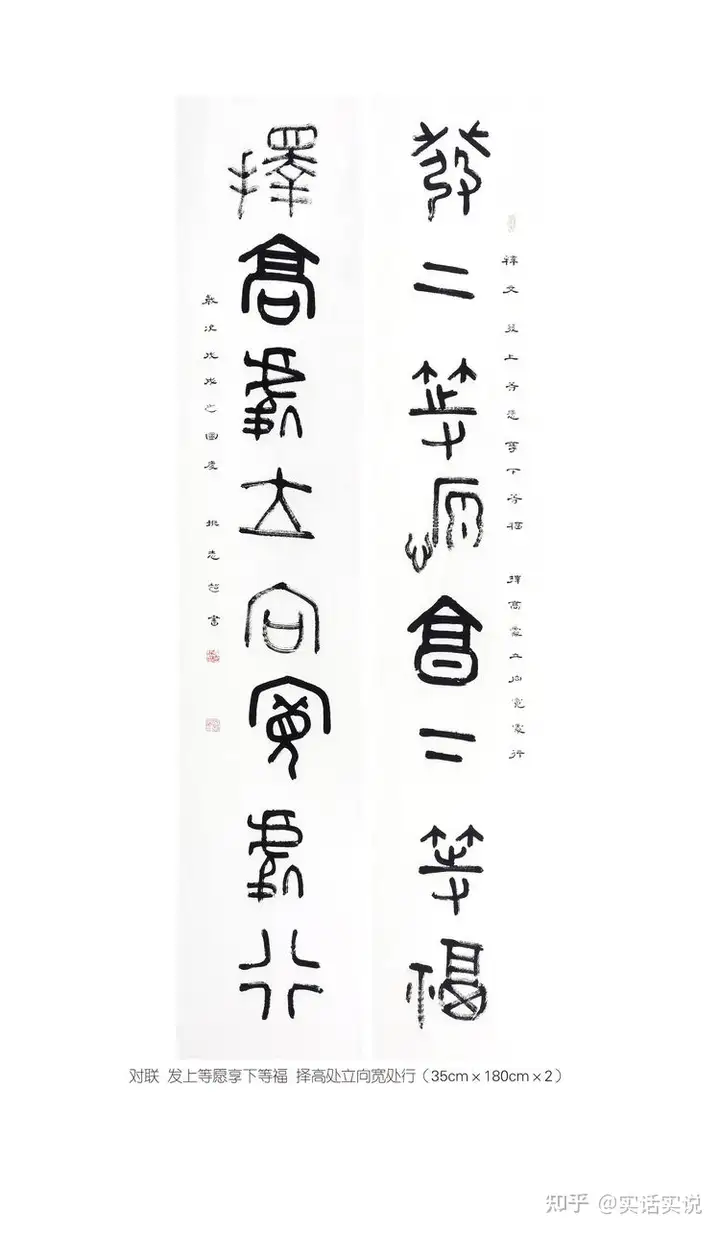 發上等願享下等福
釋文 發上等愿享下等福 擇高處立向寬處行
擇高處立向寬處行
歲次戊戌之國慶 書
对联 发上等愿享下等福 择高处立向宽处行（35cm×180cm×2）
知乎 @实话实说